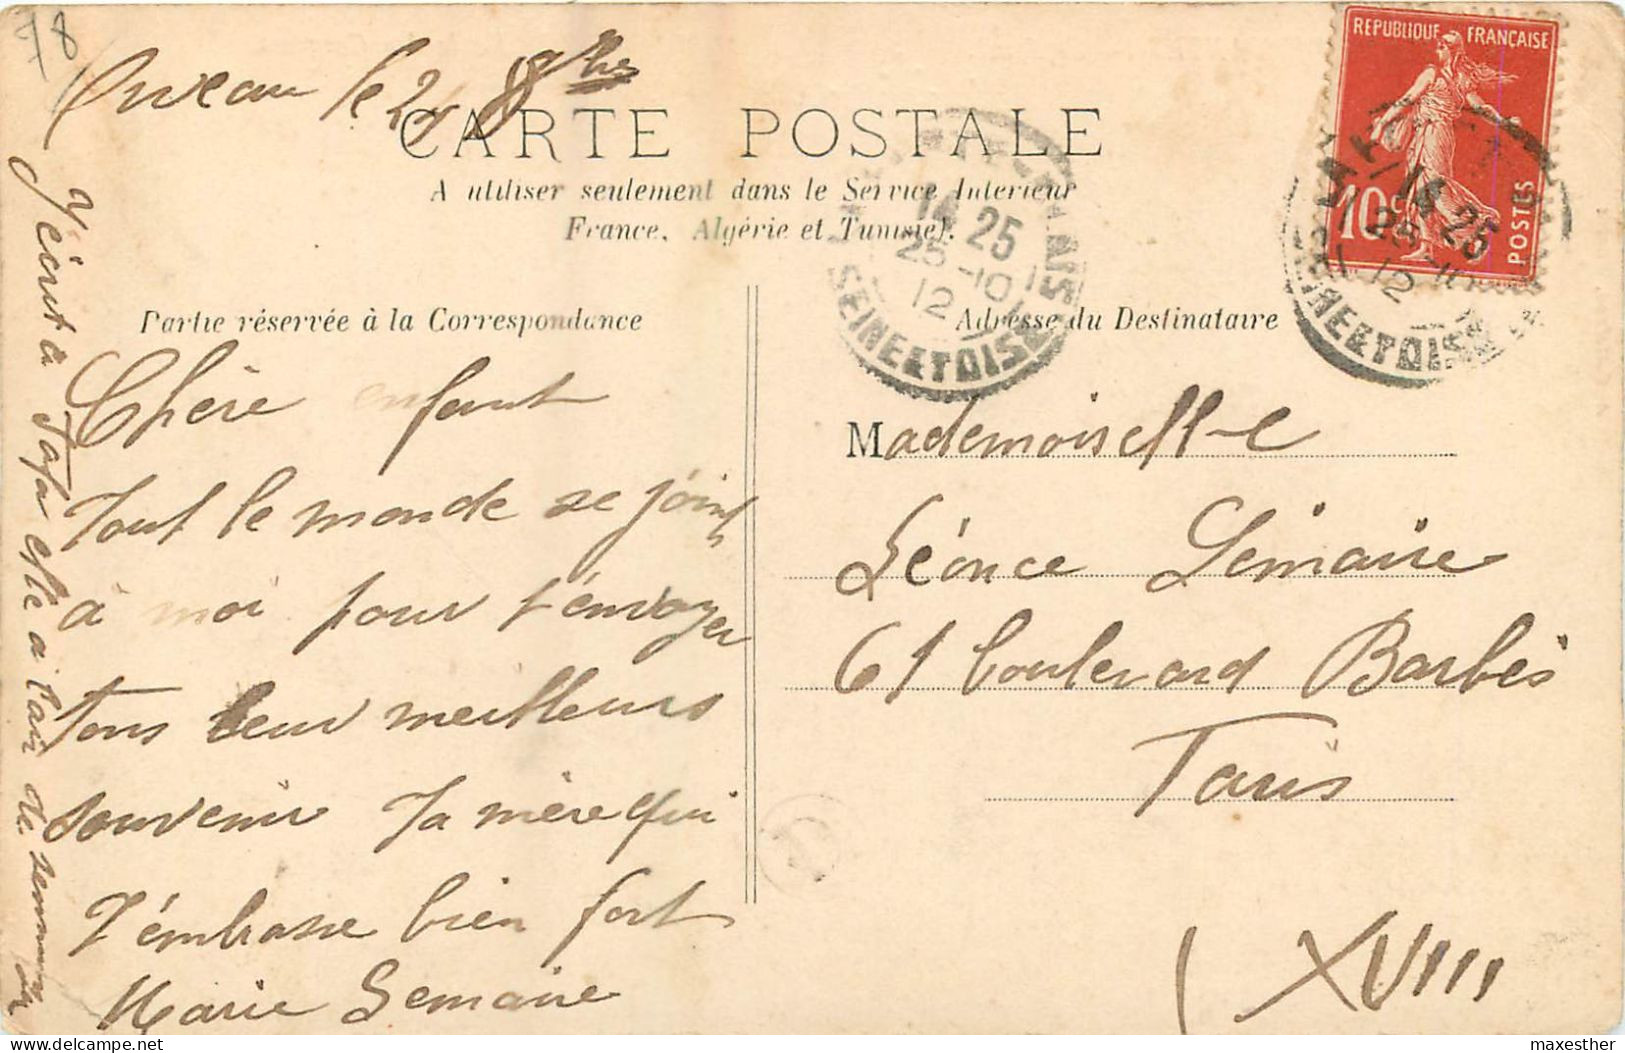 78
le 24 8bre
CARTE POSTALE
A utiliser seulement dans le Service Intérieur
France, Algérie et Tunisie).
REPUBLIQUE FRANÇAISE
10c POSTES
14 25
25 -10
12
SEINE ET OISE
14 25
25 -10
12
SEINE ET OISE
Partie réservée à la Correspondance
Adresse du Destinataire
Chère enfant
Tout le monde se joint
à moi pour t'envoyer
tous leur meilleurs
souvenir Ta mère qui
t'embrasse bien fort
Marie Lemaire
J'écrit à
Mademoiselle
Léonce Lemaire
61 boulevard Barbès
Paris
XVIII
maxesther